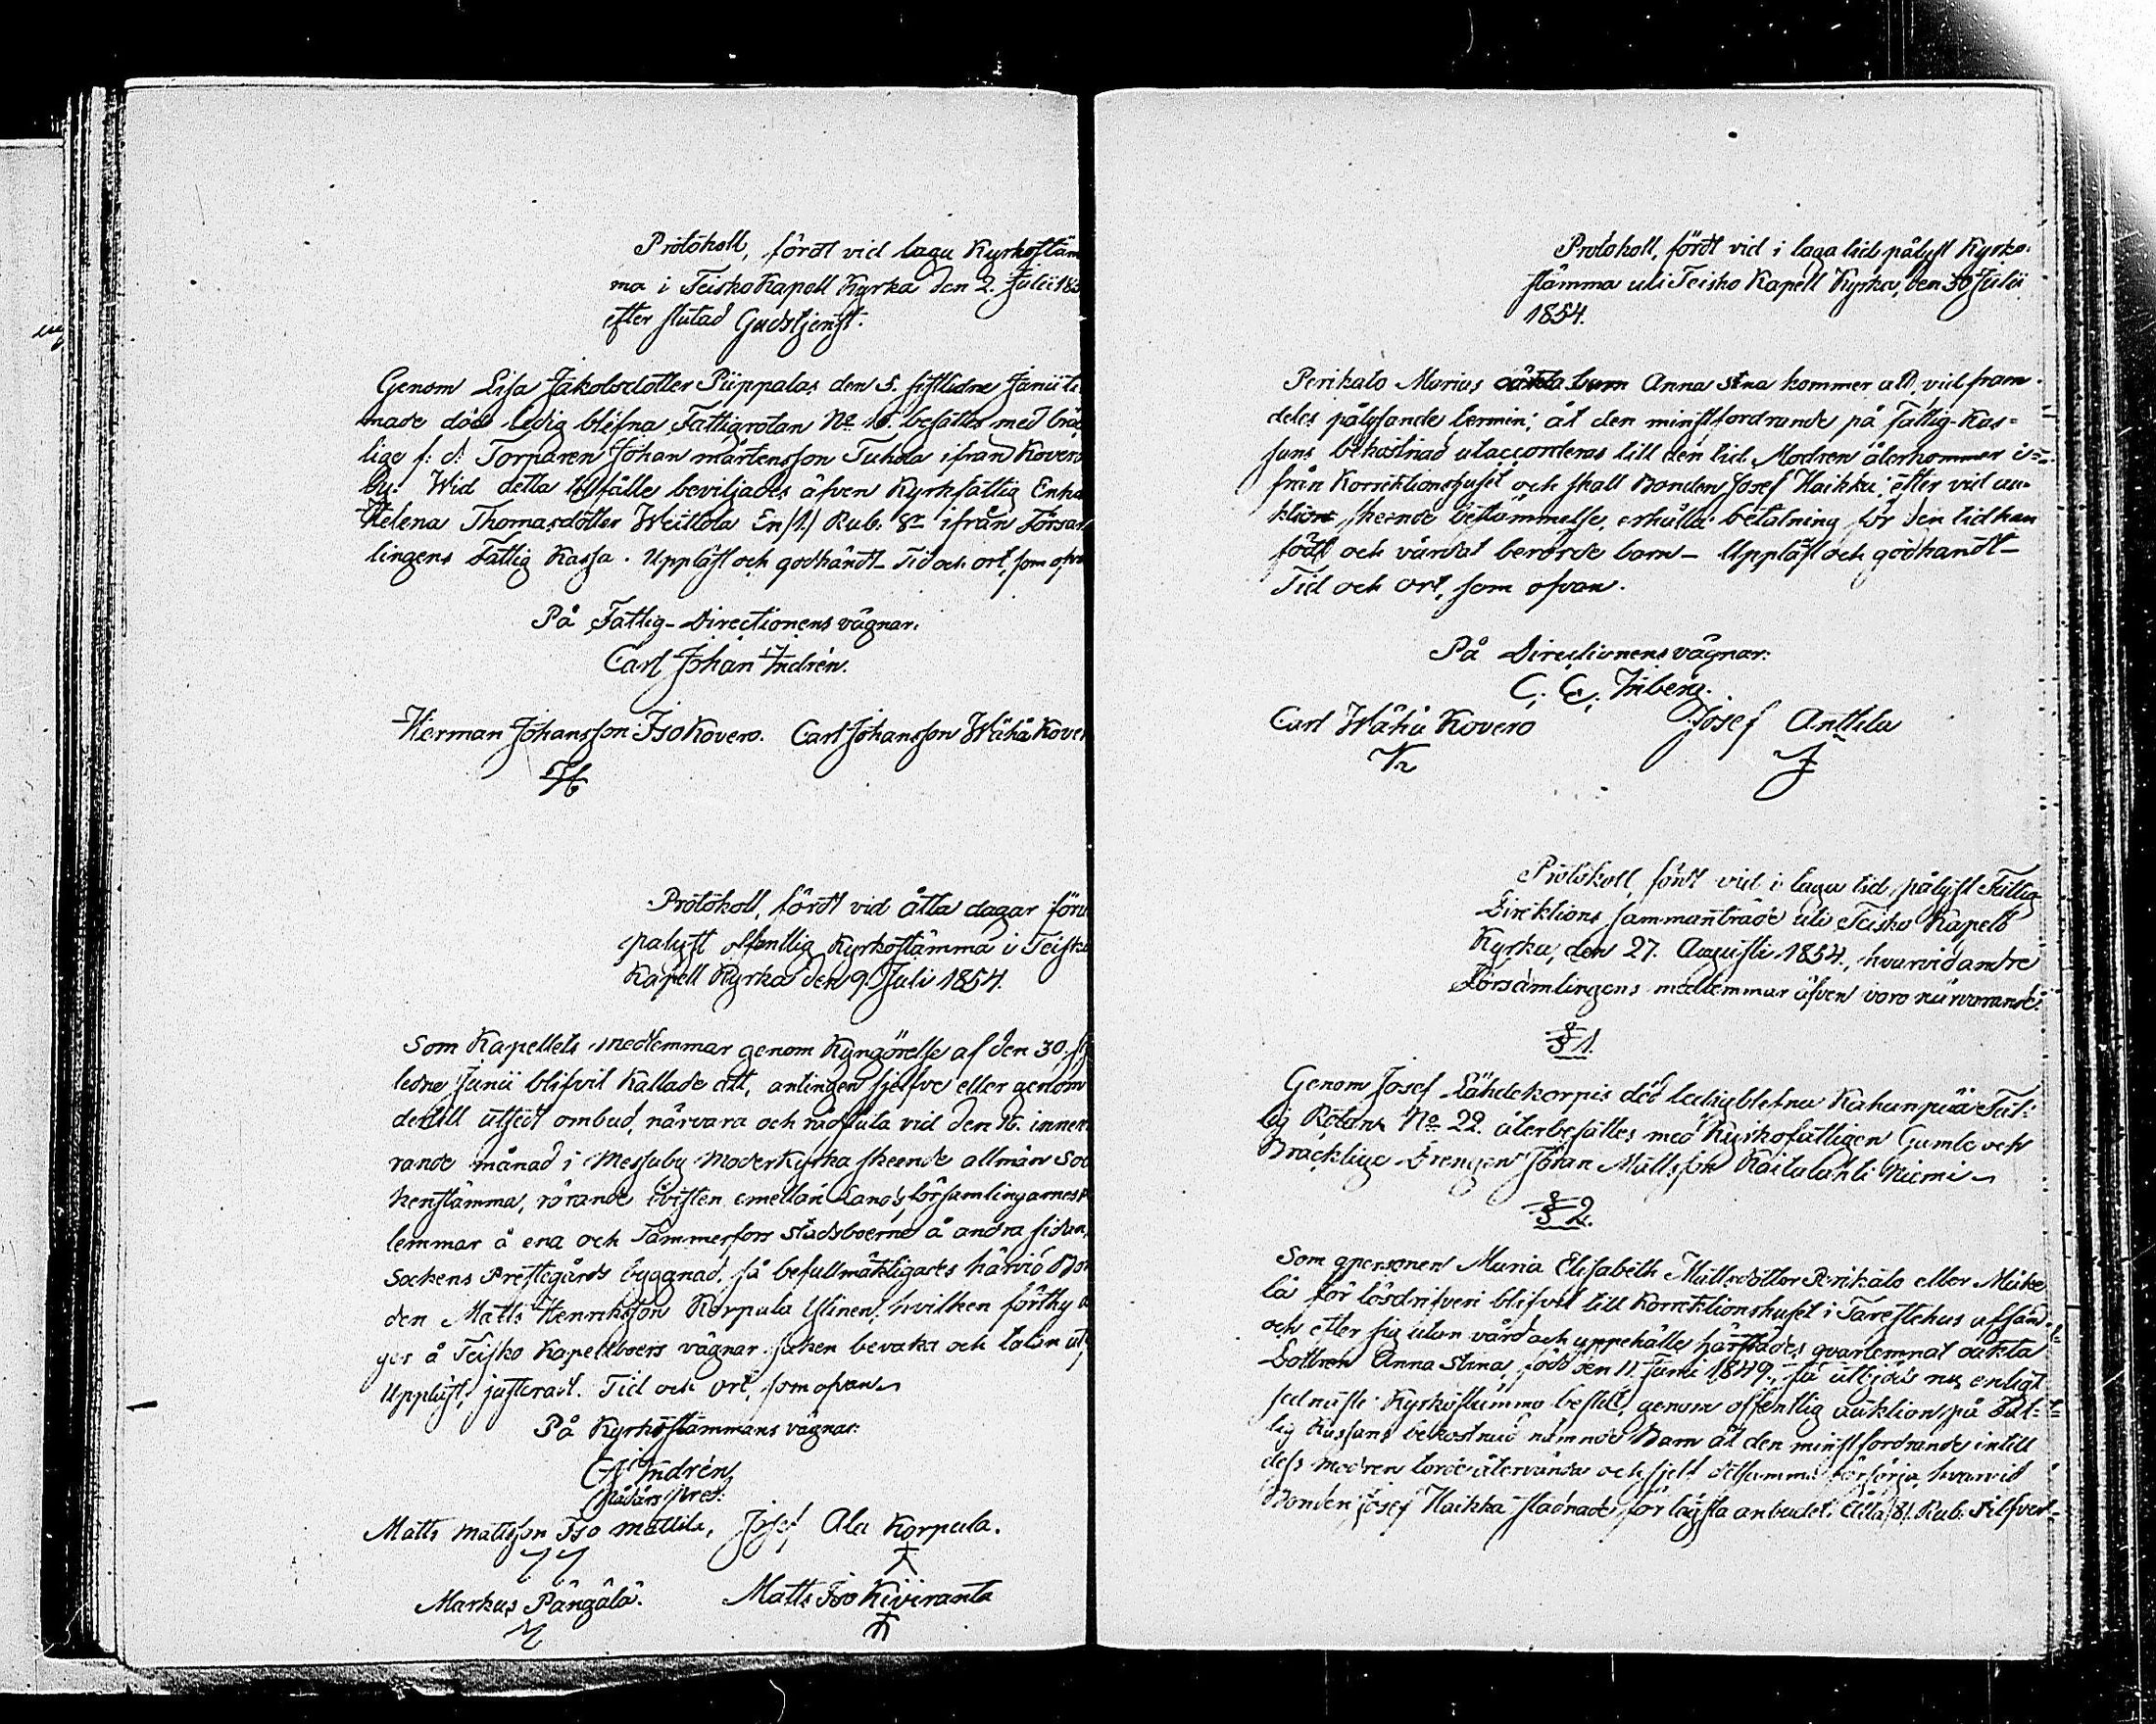 Protokoll, fördt vid laga Kyrkostäm
ma i Teisko Kapell Kyrka den 2. Julii 185
efter slutad Gudstjenst.
Genom Lisa Jakobsdotter Piippalas den 5. sistledne Junii ti
made död ledig blifna Fattigrotan No 16. besattes med bräc
lige f: d: Torparen Johan Mårtensson Tuhola ifrån Kovero
By. Wid detta tillfälle beviljades äfven Kyrkfattig Enka
Helena Thomasdotter Weittola En /1/ Rub. Sr ifrån Försam
lingens Fattig Kassa. Uppläst och godkändt. Tid och ort, som ofva
På Fattig-Directionens vägnar:
Carl Johan Indrén.
Herman Johansson Iso Kovero. Carl Johansson Wähä Kover
H
Protokoll, fördt vid åtta dagar föru
pålyst offentlig Kyrkostämma i Teisko
Kapell Kyrka den 9. Juli 1854.
Som Kapellets medlemmar genom Kungörelse af den 30. si
ledne Junii blifvit kallade att, antingen sjelfve eller genom
dertill utsedt ombud, närvara och rådslula vid den 16. inne
rande månad i Messuby Moderkyrka skeende allmän Soc
kenstämma, rörande tvisten emellan Lands församlingarnes
lemmar å ena och Tammerfors stadsboerne å andra sidan,
Sockens Prestegårds byggnad, så befullmäktigades härvid Bon
den Matts Henriksson Korpula Ylinen, hvilken förthy
ger å Teisko Kapellboers vägnar saken bevaka och talan ut
Uppläst, justeradt. Tid och ort, som ofvan
På Kyrkostämmans vägnar:
C J Indrén
Matts Mattsson Iso Mattila, Josef Ala Korpula.
Markus Pângälä. Matts Iso Kiviranta
M
Protokoll, fördt vid i laga tid pålyst Kyrko-
stämma uti Teisko Kapell Kyrka, den 30 Julii
1854.
Perikalo Marias oäkta barn Anna Stina kommer att, vid fram-
deles pålysande termin; åt den minstfordrande på Fattig-Kas-
sans bekostnad utaccorderas till den tid Modren återkommer i-
från Korrektionshuset och skall Bonden Josef Haikka, efter vid au-
ktion skeende bestämmelse, erhålla betalning för den tid han
födt och vårdat berörde barn. Uppläst och godkändt
Tid och ort, som ofvan.
På Directionens vägnar:
C. E. Friberg.
Carl Wähä Kovero Josef Anttila
J
Protokoll, fördt vid i laga tid pålyst Fattig
Direktions sammanträde uti Teisko Kapell
Kyrka, den 27. Augusti 1854., hvarvid andre
Församlingens medlemmar äfven voro närvarande.
§ 1.
Genom Josef Lähdekorpis död ledigblefna Kahanpää Fat-
tig Rotan No 22. återbesattes med Kyrkofattigen Gamle och
Bräcklige Drengen Johan Mattsson Kaitalahti Niemi
§ 2.
Som qpersonen Maria Elisabeth Mattsdotter Perikalo eller Mäke
lä för lösdrifveri blifvit till Korrektionshuset i Tavastehus afsänd
och efter sig utan vård och uppehälle härstädes qvarlemnat oäkta
Dottren Anna Stina, född den 11 Juni 1849., så utbjöds nu enligt
sednaste Kyrkostämmo beslut, genom offentlig auktion på Fat-
tig Kassans bekostnad nämnde Barn åt den minstfordrande intill
dess modren torde återvända och sjelf detsamma försörja, hvarvid
Bonden Josef Haikka stadnade för lägsta anbudet: Åtta /8/. Rub: Silfver